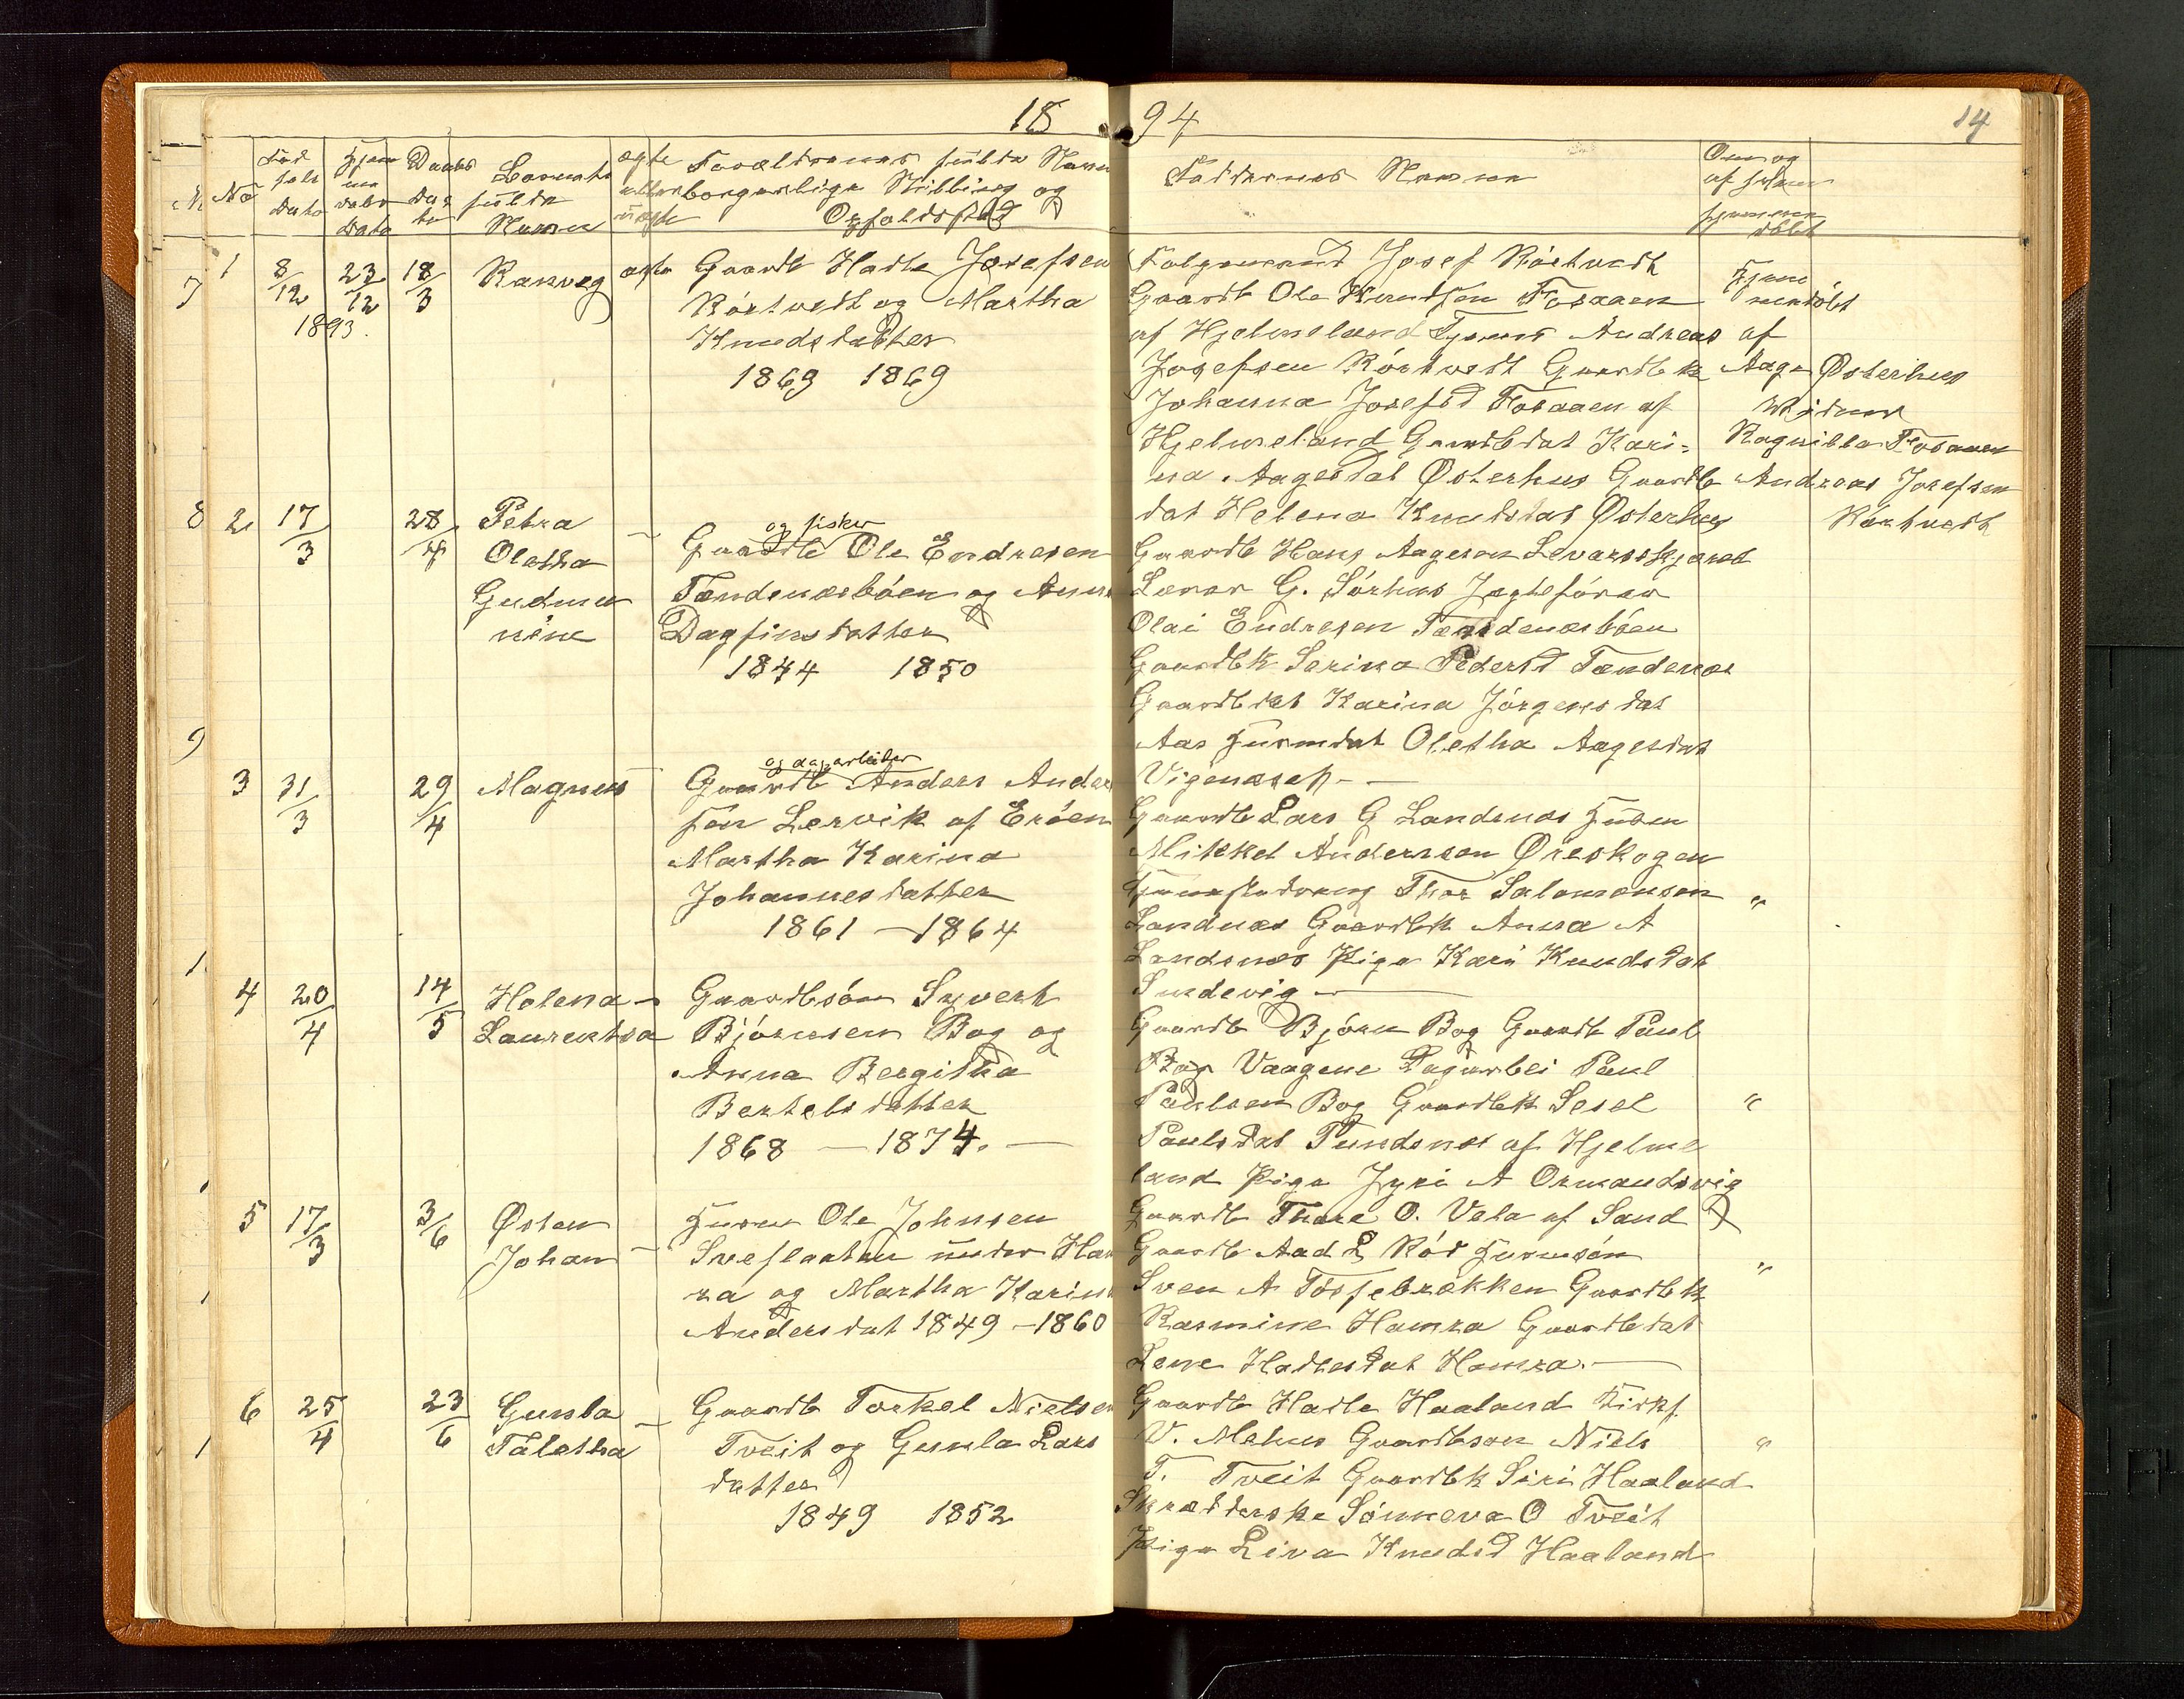 18 94
14
No
Föd
sels
dato
Hjem
me
daabs
dato
Daabs
da
to
Barnets
fulde
Navn
ægte
eller
uægte
Forældrenes fulde Navn
borgerlige Stilling og
Opholdssted
Faddernes Navne
Om og
af hvem
hjemme
døbt
1 8/12 1893. 23/12 18/3 Ranveg ægte
Gaardb Hadle Josefsen
Rörtvedt og Martha
Knudsdatter
1869 1869
Folgemand Josef Rörtvedt
Gaardb Ole Knudsen Fosaaen
af Hjelmeland Andreas
Josefsen Rörtvedt Gaardbk
Johanna Josefsd Fosaaen af
Hjelmeland Gaardbdat Kari-
na Aagesdat Østerhus Gaardb
dat Helena Knudsdat Østerhus
Hjem
medöbt
af
Aage Østerhus
Vidner
Ragnilda Fosaaen
Andreas Josefsen
Rörtvedt
2 17/3 28/4 Petra
Oletha
Gudmu
nine
og fisker
Gaardb Ole Endresen
Tændenesböen og Anna
Dagfinsdatter
1844 1850
Gaardb Hans Aagesen
Lærer G. Sörhus Jagtefører
Olai Endresen Tændenesböen
Gaardbk Serina Pedersd Tændenes
Gaardbdat Karina Jörgensdat
Aas Huusmdat Oletha Aagesdat
3 31/3 29/4 Magnus
og dagarbeider
Gaardb Anders Ander
sen Lervik af Eröen
Martha Karina
Johannesdatter
1861 – 1864
Gaardb Lars G Landsnes Husm
Mikkel Andersen Øreskogen
Thor Salomonsen
Landsnes Gaardbk Anna A
Landsnes Pige Kari Knudsdat
Sundevig
4 20/4 14/5 Helena
Laurentsa
Gaardbsön Syvert
Björnsen Bog og
Anna Bergitha
Bertelsdatter
1868 – 1874.
Gaardb Björn Bog Gaardb Paul
Vaagene Dagarbei Paul
Paulsen Bog Gaardbk Sesel
Paulsdat Tundsnes af Hjelme
land Pige Jyri A Ormandsvig
5 17/3 3/6 Østen
Johan
Husm Ole Johnsen
Sveslaaten under Ham
ra og Martha Karine
Andersdat 1849 – 1860
Gaardb Thore O. Vela af Sand
Gaardb Aad L Röd Husmsön
Sven A Tössebrekken Gaardbk
Rasmine Hamra Gaardbdat
Lene Hadlesdat Hamra.
6 25/4 23/6 Gunla
Taletha
Gaardb Torkel Nielsen
Tveit og Gunla Lars
datter
1849 1852
Gaardb Hadle Haaland Kirks.
V. Mehus Gaardbsøn Niels
T. Tveit Gaardbk Siri Haaland
Skrædderske Sönneva O Tveit
Pige Liva Knudsd Haaland